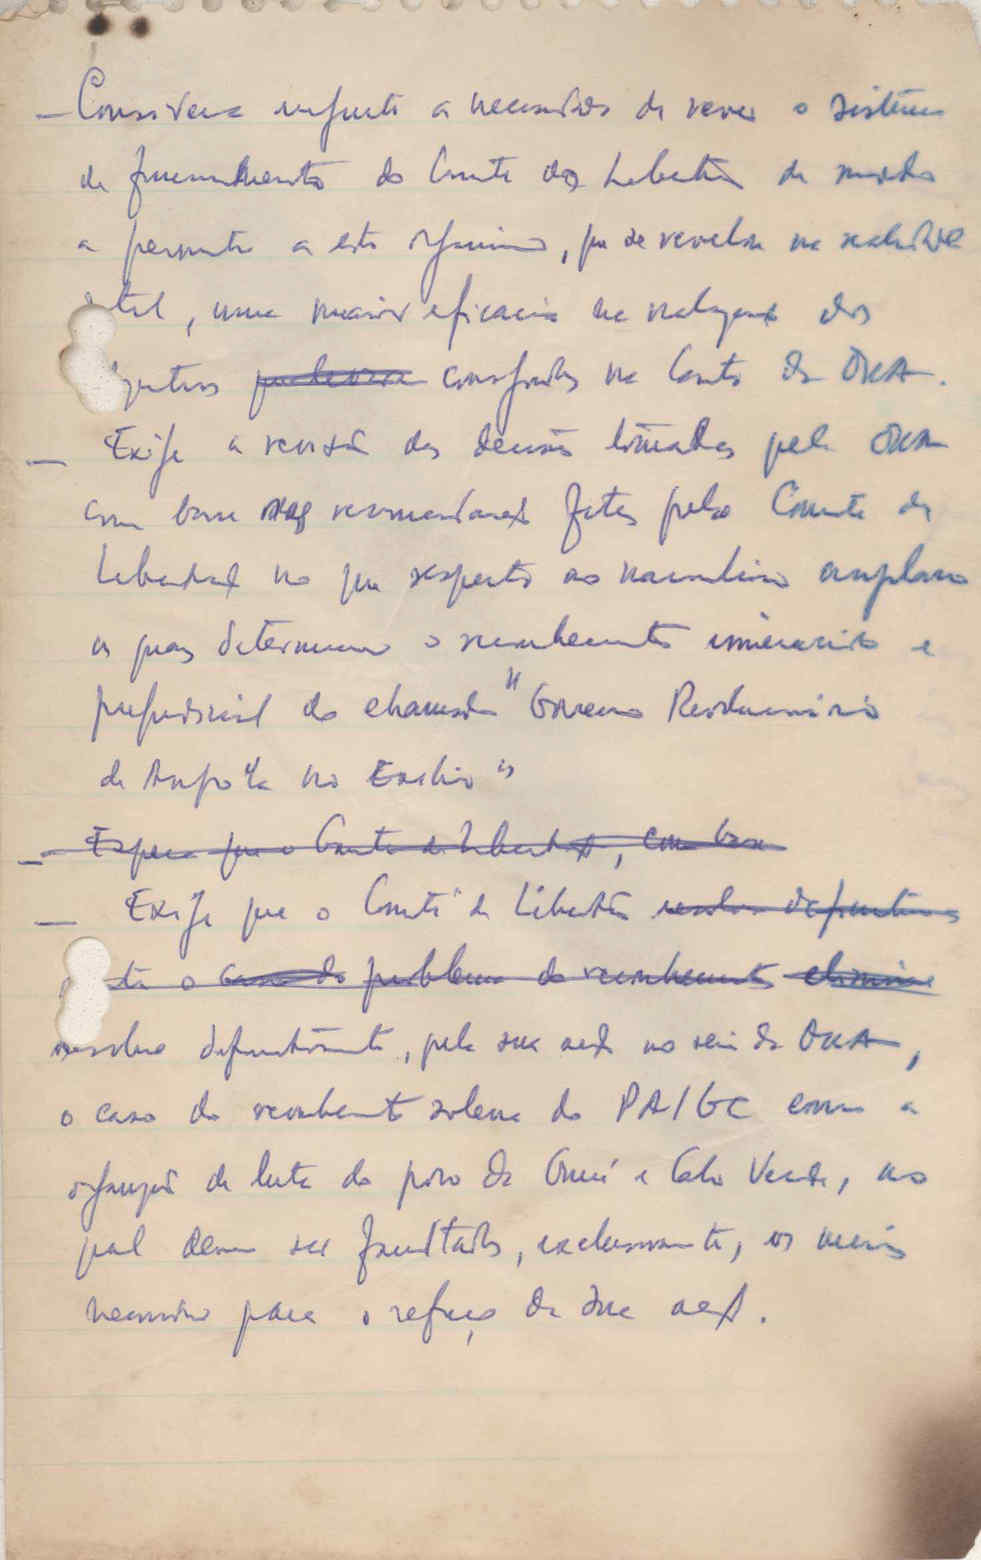 — Considera urgente a necessidade de rever o sistema
de funcionamento do Comité de Libertação de modo
a permitir a este organismo, que se revelou na realidade
útil, uma maior eficácia na realização dos
objectivos consagrados na Carta da OUA.
— Exige a revisão das decisões tomadas pela OUA
com base nas recomendações feitas pelo Comité de
Libertação no que respeita ao nacionalismo angolano
as quais determinam o reconhecimento e
prejudicial do chamado "Governo Revolucionário
de Angola no Exílio"
— Espera que o Comité de Libertação, com base
— Exige que o Comité de Libertação resolva definitiva
o caso do problema do reconhecimento elimine
resolva definitivamente, pela sua acção no seio da OUA,
o caso do reconhecimento solene do PAIGC como a
organização de luta do povo da Guiné e Cabo Verde, ao
qual devem ser facultados, exclusivamente, os meios
necessários para o reforço da sua acção.